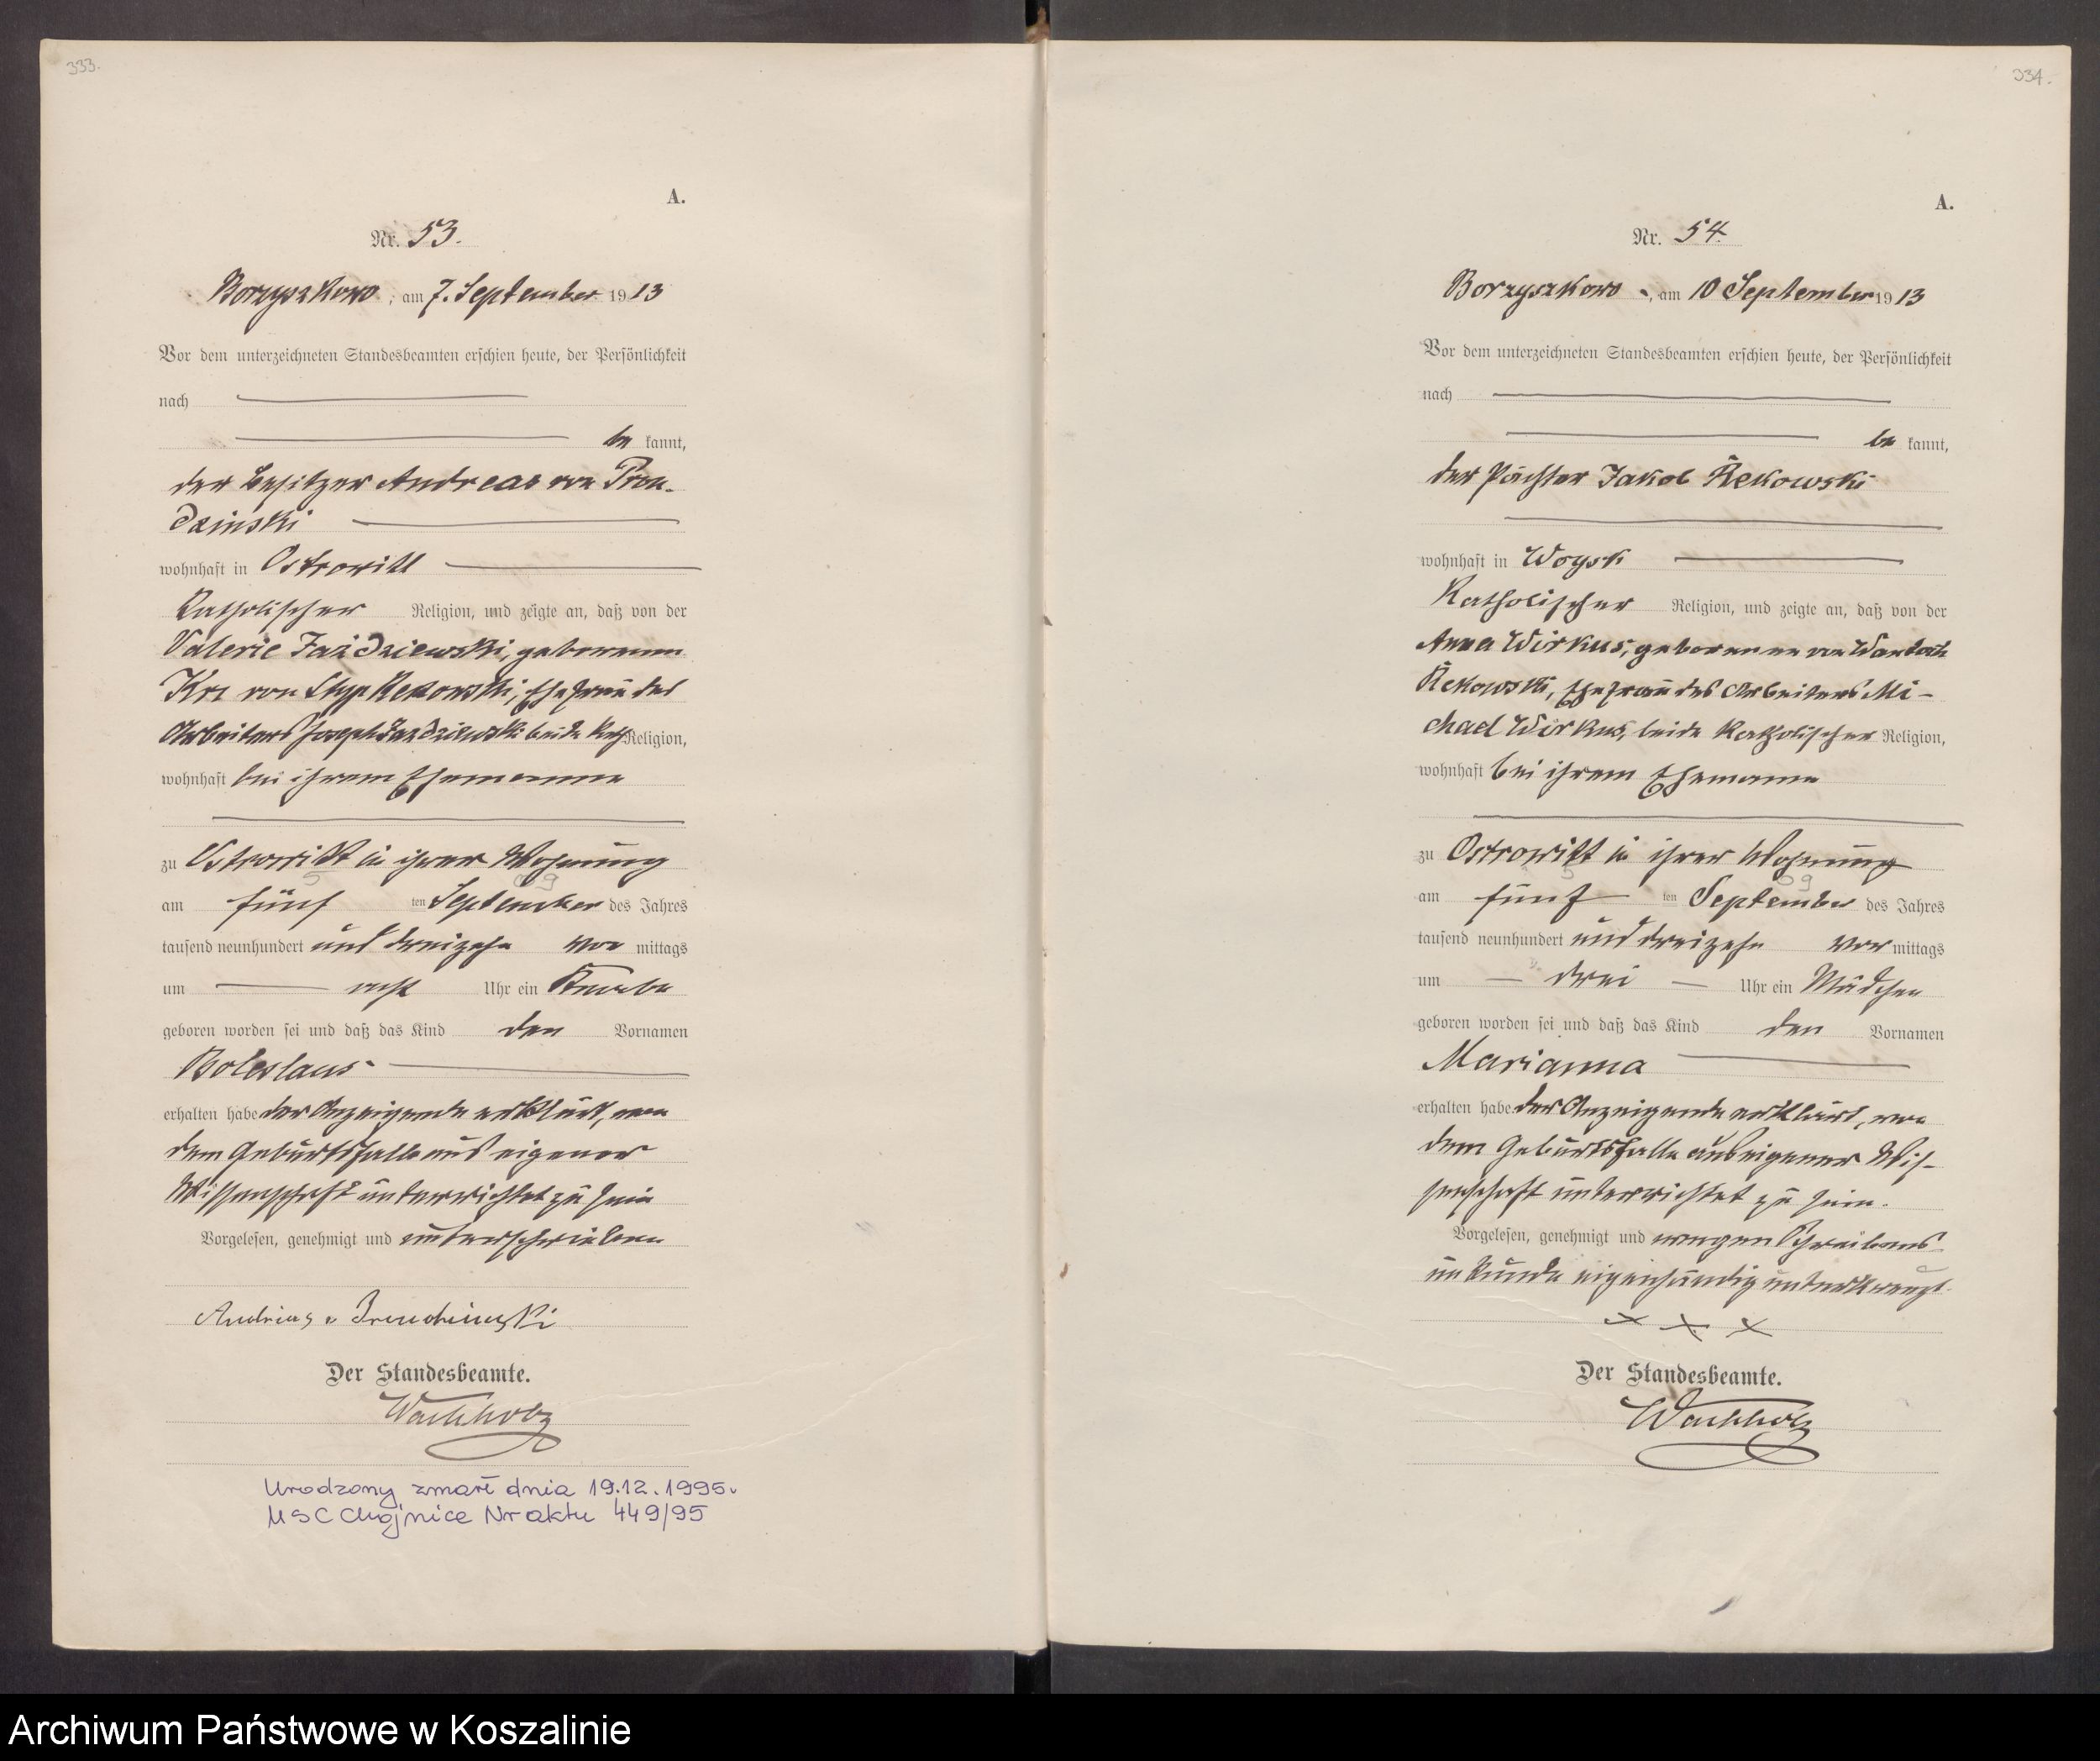 333.
A.
Nr. 53.
Borzyszkowo, am 7. September 1913
Vor dem unterzeichneten Standesbeamten erschien heute, der Persönlichkeit
nach
be kannt,
der Besitzer Andreas von
dzinski
wohnhaft in Ostrowitt
Katholischer Religion, und zeigte an, daß von der
Valerie Jażdziewski, geborenen
von Styp Rekowski, Ehefrau des
Arbeiters Joseph Jażdziewski beide kath Religion,
wohnhaft bei ihrem Ehemanne
zu Ostrowitt in ihrer Wohnung
am fünf ten September des Jahres
tausend neunhundert und dreizehn vor mittags
um acht Uhr ein Knabe
geboren worden sei und daß das Kind den Vornamen
Boleslaus
erhalten habe der Anzeigende erklärt, von
dem Geburtsfalle aus eigener
Wissenschaft unterrichtet zu sein
Vorgelesen, genehmigt und unterschrieben
Der Standesbeamte.
Wachholz
Urodzony zmarł dnia 19.12.1995.
USC Chojnice Nr aktu 449/95
334.
A.
Nr. 54.
Borzyszkowo, am 10 September 1913
Vor dem unterzeichneten Standesbeamten erschien heute, der Persönlichkeit
nach
be kannt,
der Pächter Jakob Rekowski
wohnhaft in Woysk
Katholischer Religion, und zeigte an, daß von der
Anna Wirkus, geborenen von
Rekowski, Ehefrau des Arbeiters Mi-
chael Wirkus, beide Katholischer Religion,
wohnhaft bei ihrem Ehemanne
zu Ostrowitt in ihrer Wohnung
am fünf ten September des Jahres
tausend neunhundert und dreizehn vor mittags
um drei Uhr ein Mädchen
geboren worden sei und daß das Kind den Vornamen
Marianna
erhalten habe der Anzeigende erklärt, von
dem Geburtsfalle aus eigener Wis-
senschaft unterrichtet zu sein.
Vorgelesen, genehmigt und wegen Schreibens
unkunde eigenhändig unterkreuzt.
x x x
Der Standesbeamte.
Wachholz
Archiwum Państwowe w Koszalinie